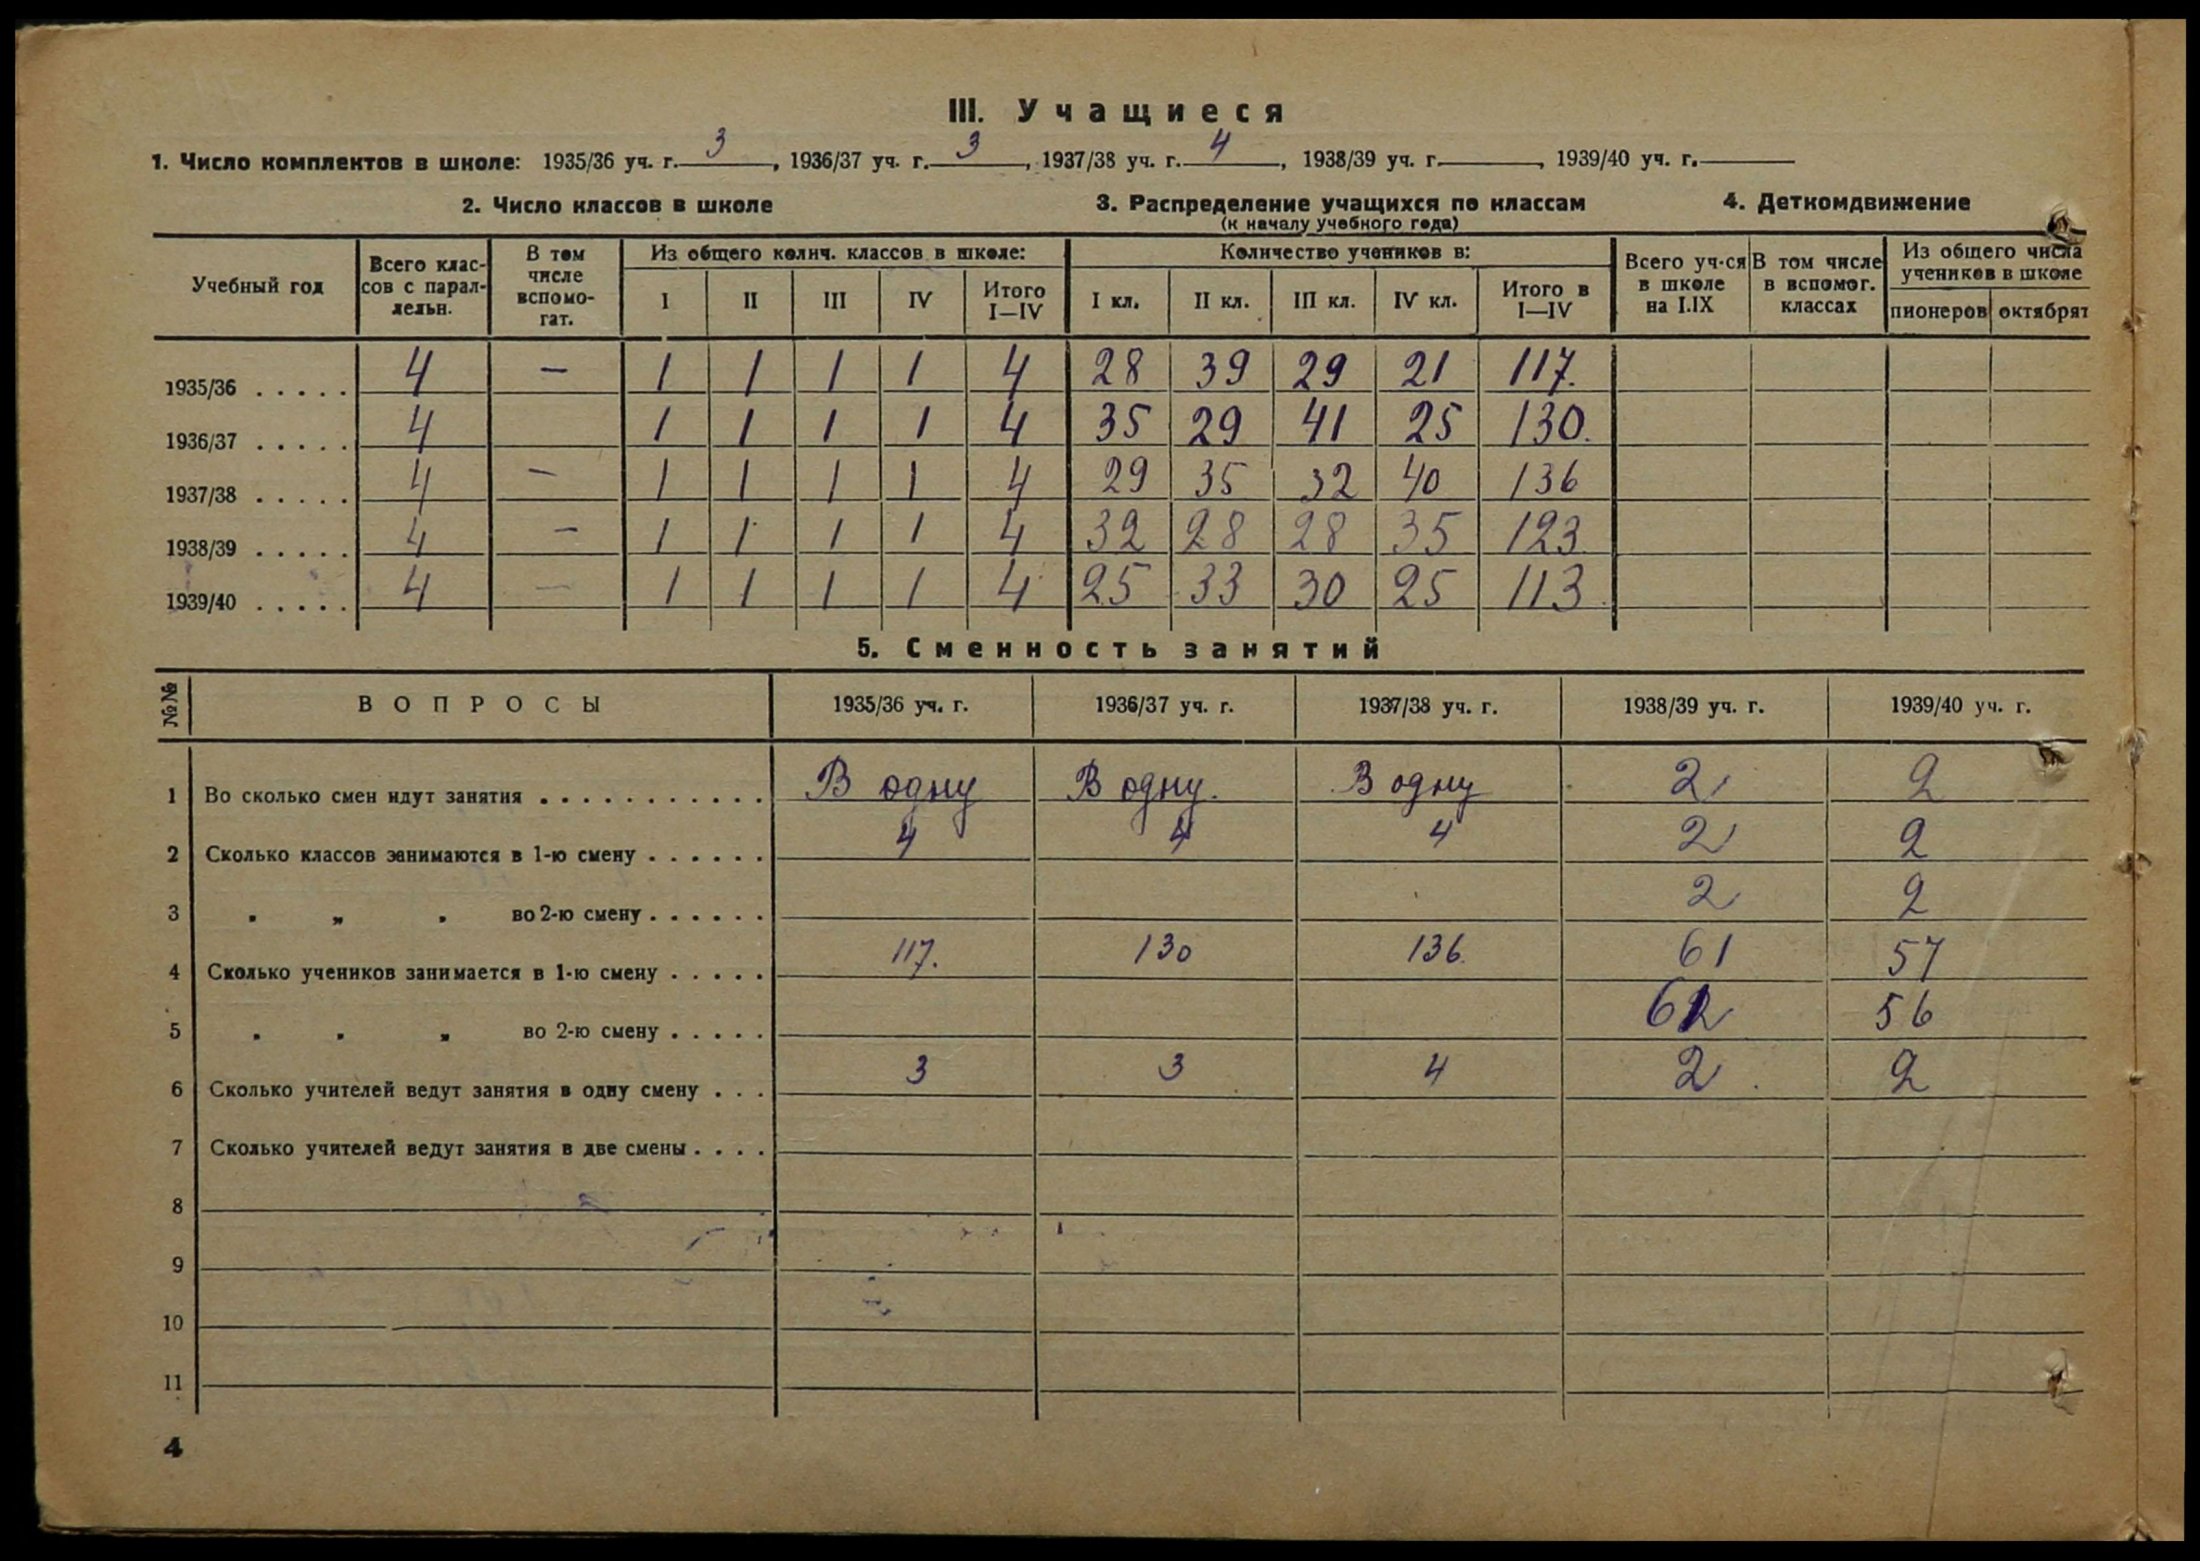 III. Учащиеся
1. Число комплектов в школе: 1935/36 уч. г. 3, 1936/37 уч. г. 3, 1937/38 уч. г. 4, 1938/39 уч. г. , 1939/40 уч. г.
2. Число классов в школе 3. Распределение учащихся по классам 4. Деткомдвижение
(к началу учебного года)
Учебный год Всего классов с параллельн. В том числе вспомогат. Из общего колич. классов в школе: Количество учеников в: Всего уч-ся в школе на I.IX В том числе в вспомог. классах Из общего числа учеников в школе
I II III IV Итого I—IV I кл. II кл. III кл. IV кл. Итого в I—IV пионеров октябрят
1935/36 . . . . . 4 — 1 1 1 1 4 28 39 29 21 117.
1936/37 . . . . . 4 1 1 1 1 4 35 29 41 25 130.
1937/38 . . . . . 4 — 1 1 1 1 4 29 35 32 40 136
1938/39 . . . . . 4 — 1 1 1 1 4 32 28 28 35 123
1939/40 . . . . . 4 — 1 1 1 1 4 25 33 30 25 113
5. Сменность занятий
№№ ВОПРОСЫ 1935/36 уч. г. 1936/37 уч. г. 1937/38 уч. г. 1938/39 уч. г. 1939/40 уч. г.
1 Во сколько смен идут занятия . . . . . . . . . . . В одну В одну. В одну 2 2
2 Сколько классов занимаются в 1-ю смену . . . . . . 4 4 4 2 2
3 " „ " во 2-ю смену . . . . . . 2 2
4 Сколько учеников занимается в 1-ю смену . . . . . 117. 130 136. 61 57
5 " " „ во 2-ю смену . . . . . 62 56
6 Сколько учителей ведут занятия в одну смену . . . 3 3 4 2 2
7 Сколько учителей ведут занятия в две смены . . . .
8
9
10
11
4